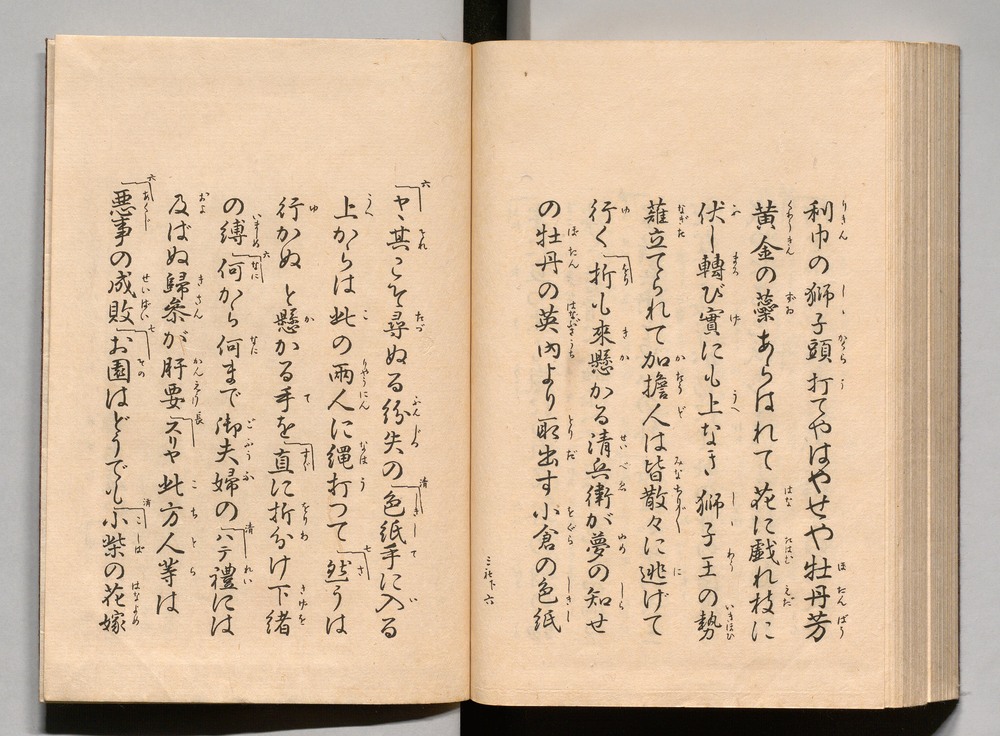 利巾の獅子頭打てやはやせや牡丹芳
黄金の蘂あらはれて花に戯れ枝に
伏し轉び實にも上なき獅子王の勢
薙立てられて加擔人は皆散々に逃げて
行く折も來懸かる清兵衛が夢の知せ
の牡丹の英内より取出す小倉の色紙
六
ヤヽ其こそ尋ぬる紛失の色紙手に入る
上からは此の兩人に縄打つて然うは
行かぬと懸かる手を直に折分け下緒
の縛何から何まで御夫婦のハテ禮には
及ばぬ歸參が肝要スリヤ此方人等は
悪事の成敗お園はどうでも小柴の花嫁